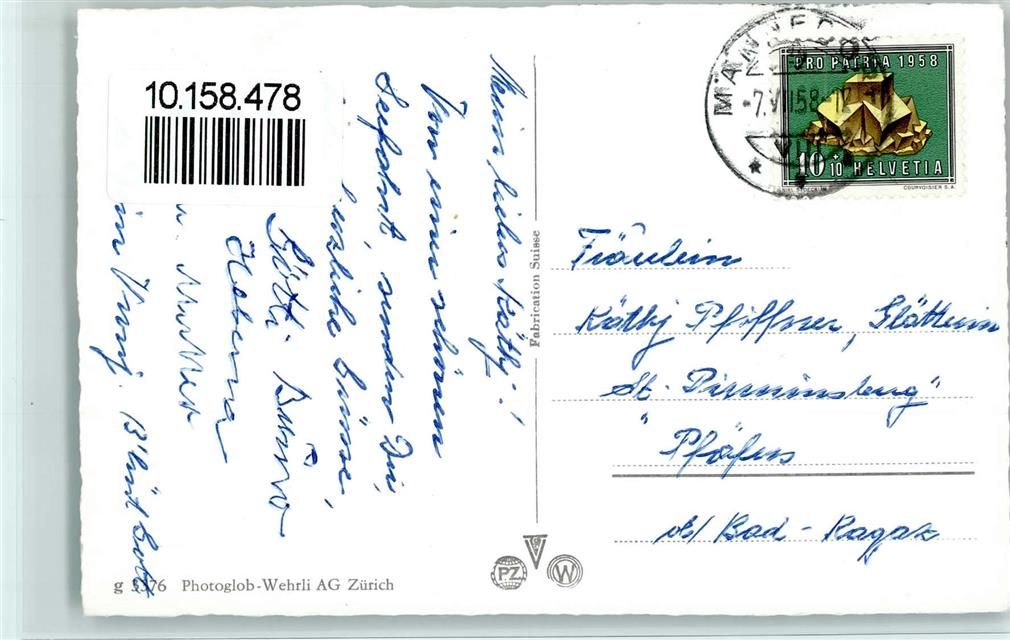 10.158.478
Mein liebes Käthj!
Von einer schönen
Seefahrt, senden Dir
herzliche Grüsse,
Götti Bruno
Mutter
Fabrication Suisse
g 3376 Photoglob-Wehrli AG Zürich
PZ
W
PRO PATRIA 1958
10+10 HELVETIA
COURVOISIER S.A.
Fräulein
Käthj Pfiffner, Glätterin
St. Pirminsberg"
" Pfäfers
ob/ Bad-Ragaz